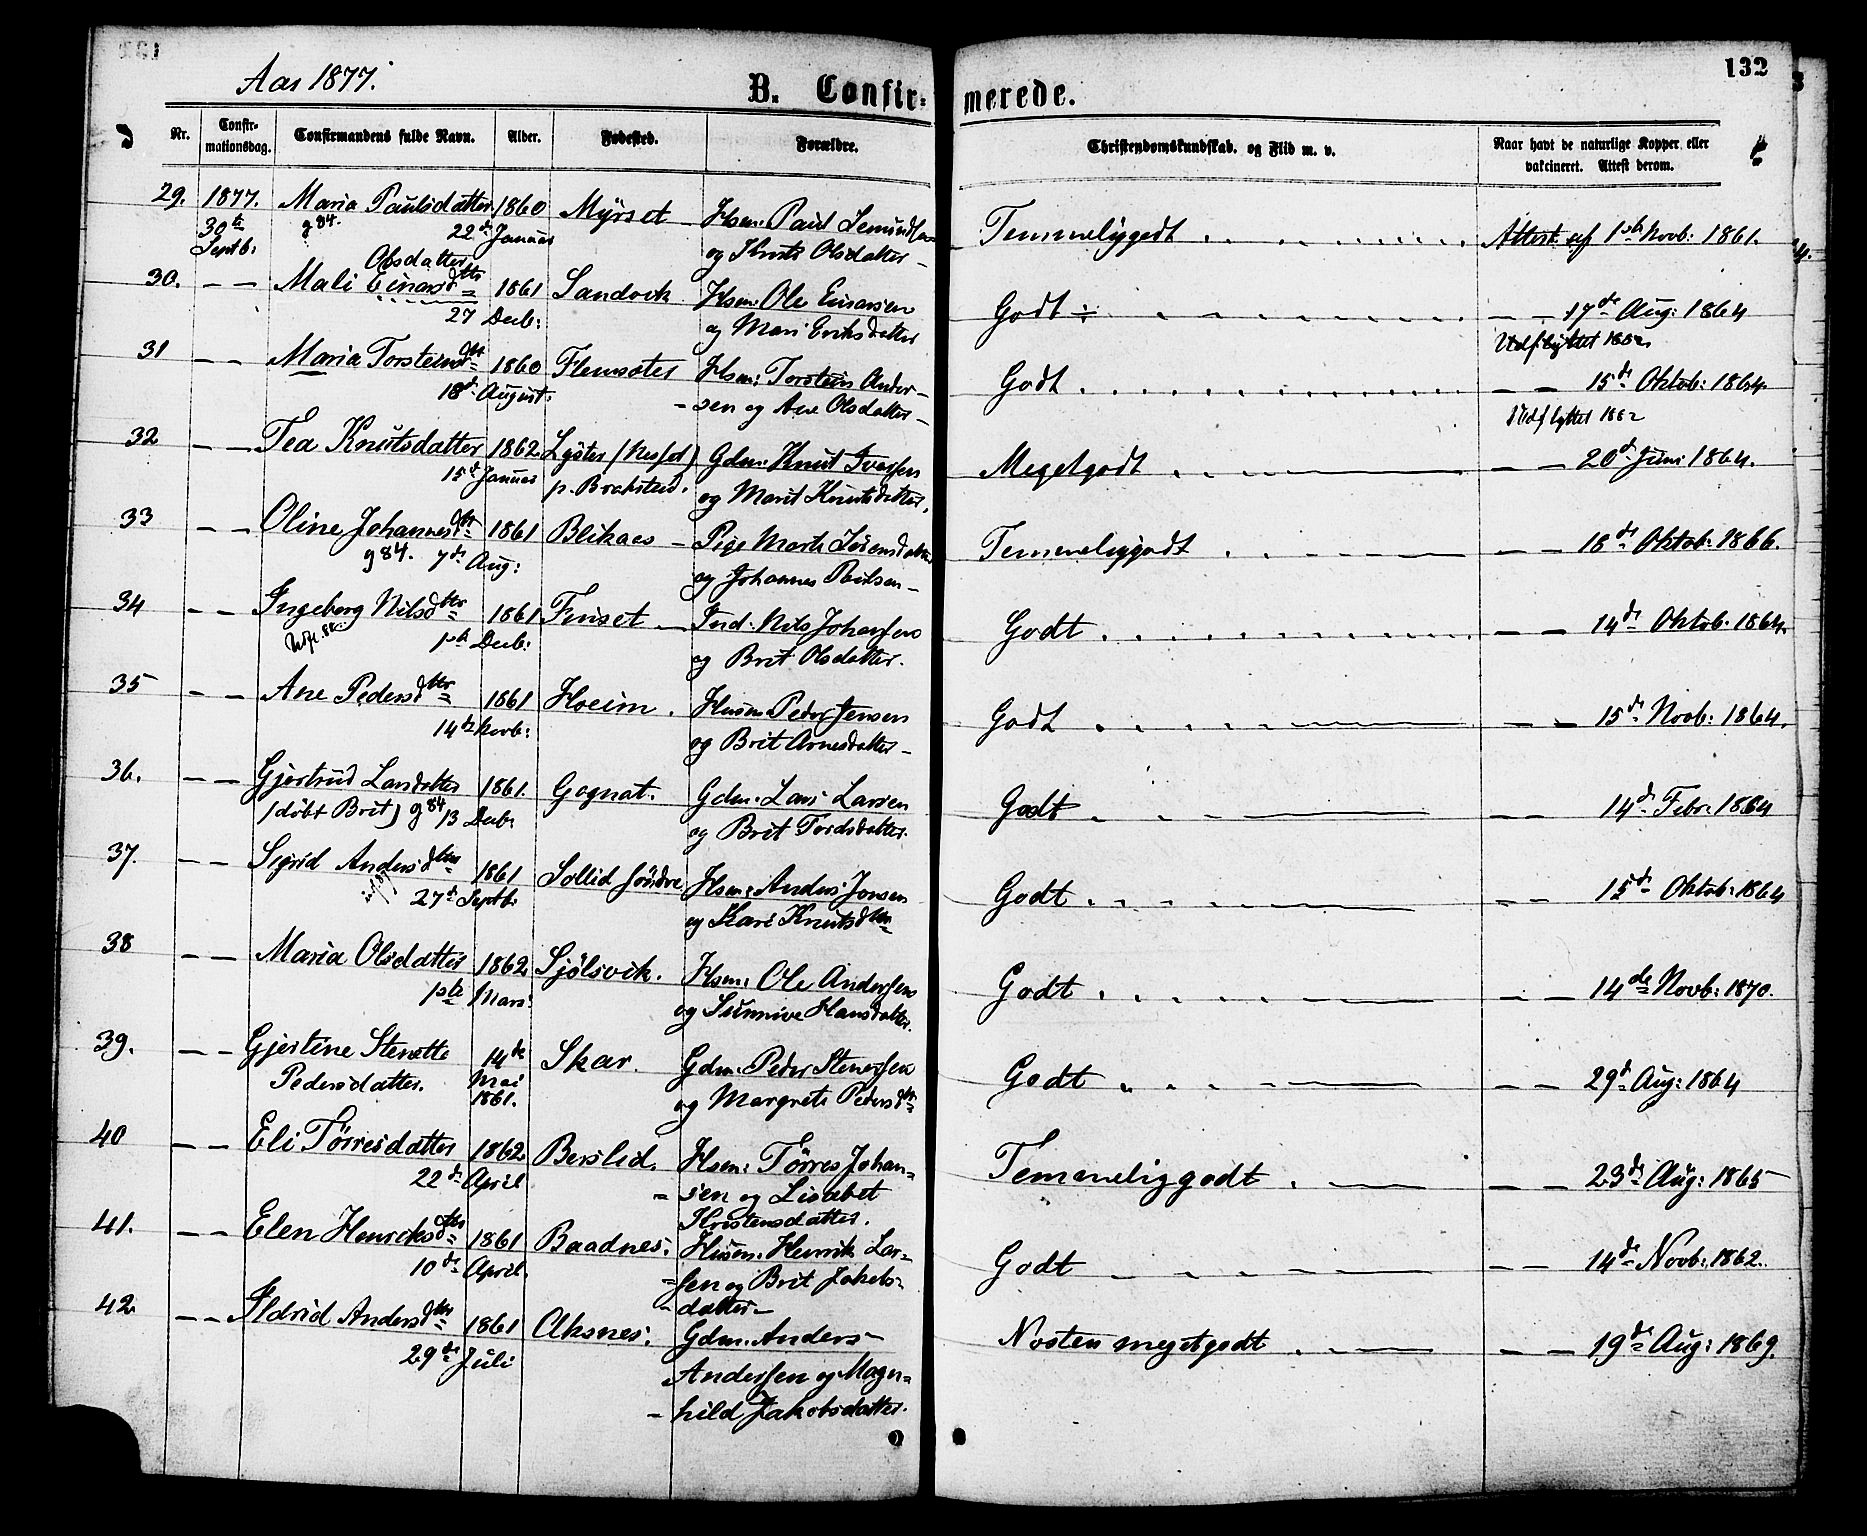 Aar 1877.
B. Confir-
merede.
132
Nr.
Confir-
mationsdag.
Confirmandens fulde Navn.
Alder.
Fødested.
Forældre.
Christendomskundskab. og Flid m. v.
Naar havt de naturlige Kopper eller
vakcineret. Attest derom.
29. 1877. Maria Paulsdatter 1860 Myrset Hsm: Paul
30te g 84. 22de Januar og Olsdatter Temmeliggodt Attest af 1ste Novb: 1861.
Septb:
Olsdatter
30. — — Mali Einarsdtr 1861 Sandvik Hsm: Ole Einarsen
27 Decb: og Mari Eriksdatter Godt ÷ — — 17de Aug: 1864
Udflyttet
31 — — Maria Torsteinsdtr 1860 Flemsæter Hsm: Torstein Ander-
18de August. -sen og Ane Olsdatter Godt — — 15de Oktob: 1864.
Udflyttet 1882
32 — — Tea Knutsdatter 1862 Gdm: Knut Iversen
15de Januar p. Brakstad. og Marit Knutsdatter. Megetgodt — — 20de Juni 1864.
33 — — Oline Johannesdtr 1861 Blikaas Pige Marte
g 84. 7de Aug: og Johannes Temmeliggodt — — 18de Oktob: 1866.
34 — — Ingeborg Nilsdtr 1861 Finset Ind. Nils Johansen
1ste Decb: og Brit Olsdatter. Godt — — 14de Oktob: 1864.
35 — — Ane Pedersdtr 1861 Hoeim. Husm: Peder Jensen
14de Novb: og Brit Arnesdatter Godt — — 15de Novb: 1864.
36. — — Gjertrud Larsdatter 1861. Gognat. Gdm: Lars Larsen
(døbt Brit) g 84 13 Decb: og Brit Tordsdatter. Godt — — 14de Febr: 1864
37. — — Sigrid Andersdtr 1861 Sollid søndre Hsm: Anders Jonsen
27de Septb: og Kari Knutsdtr Godt — — 15de Oktob: 1864
38 — — Maria Olsdatter 1862 Sjølsvik. Hsm: Ole Andersen
1ste Mars: og Sunnive Hansdatter. Godt — — 14de Novb: 1870.
39. — — Gjertine Stenette 14de Skar. Gdm: Peder Stenersen
Pedersdatter. Mai og Margrete Pedersdtr Godt — — 29de Aug: 1864
1861.
40 — — Eli Tørresdatter 1862 Berslid. Hsm: Tørres Johan-
22de April =sen og Lisabet Temmeliggodt — — 23de Aug: 1865
Kristensdatter.
41. — — Elen Henriksdtr 1861 Baadnes: Husm: Henrik Lar-
10de April =sen og Brit Jakobs- Godt — — 14de Novb: 1862.
-datter
42 — — Ildrid Andersdtr 1861 Aksnes: Gdm: Anders
29de Juli Andersen og Magn= Næsten megetgodt — — 19de Aug: 1869.
-hild Jakobsdatter.